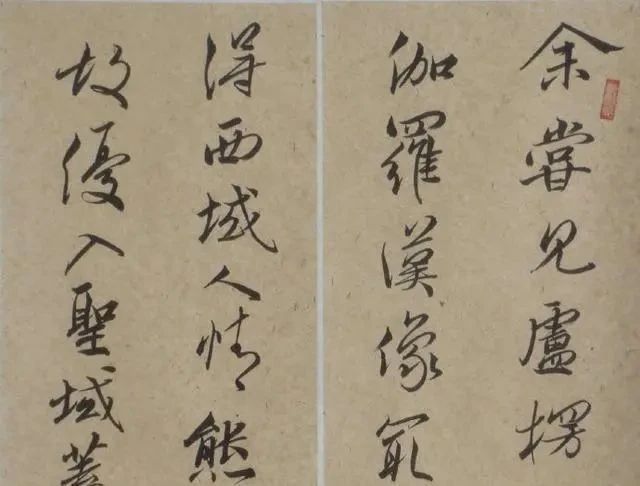 余嘗見盧楞
伽羅漢像最
得西域人情態
故優入聖域蓋